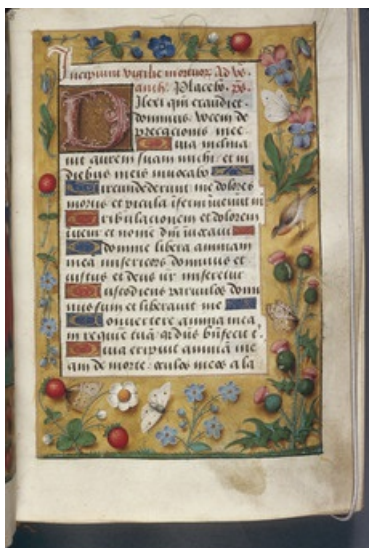 Incipiunt vigilie mortuor Ad vs.
anth. Placebo. ps.
Dilexi qm exaudiet
dominus vocem de
precacionis mee
Quia inclina
uit aurem suam michi et in
diebus meis inuocabo
Circundederunt me dolores
mortis et pericla iferni inuenerut m
Tribulacionem et dolorem
inueni et nome dni inuocaui
O domine libera animam
mea misericors dominus et
iustus et deus nr miseretur
Custodiens paruulos domi
nus humiliatus sum et liberauit me
Conuertere anima mea
in requie tua qr dns bnfecit t.
Quia eripuit animã me
am de morte oculos meos a la